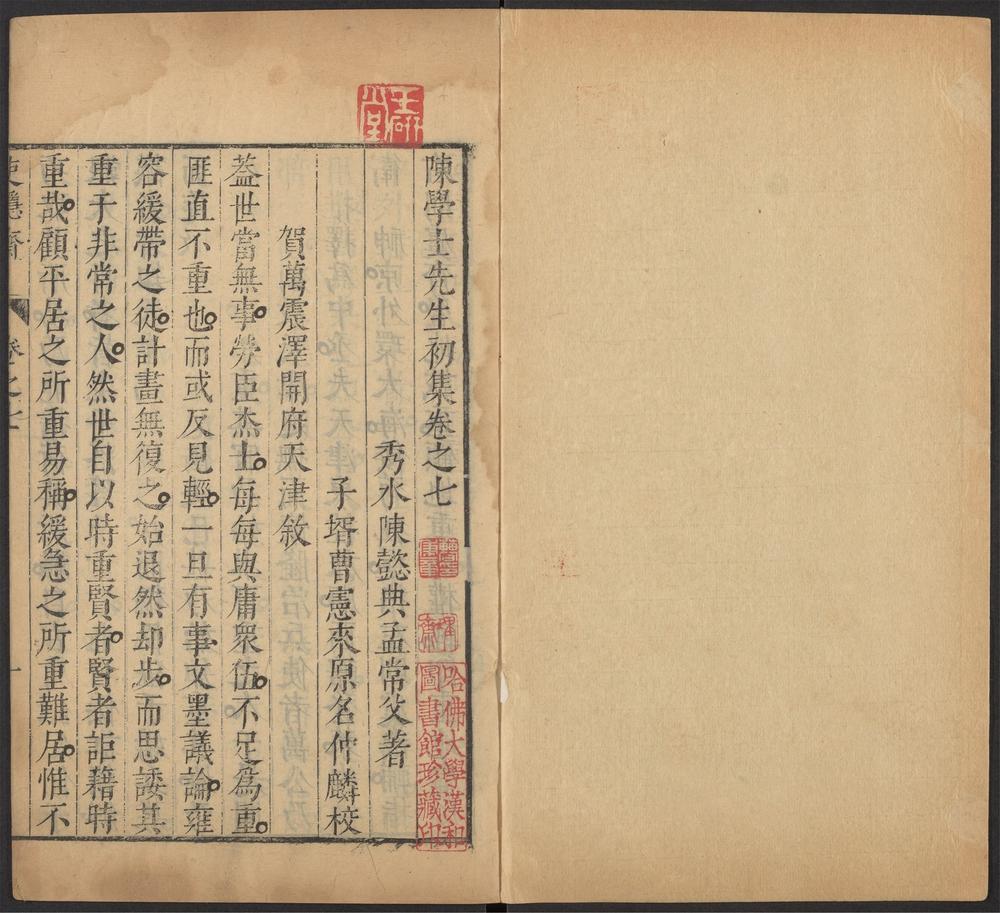 陳學士先生初集卷之七
秀水陳懿典孟常父著
子壻曹憲來原名仲麟校
賀萬震澤開府天津敘
蓋世當無事勞臣杰士每每與庸眾伍不足為重
匪直不重也而或反見輕一旦有事文墨議論雍
容緩帶之徒計畫無復之始退然却步而思諉其
重于非常之人然世自以時重賢者賢者詎藉時
重哉顧平居之所重易稱緩急之所重難居惟不
卷之七
一
研堂
哈佛大學漢和
圖書館珍藏印